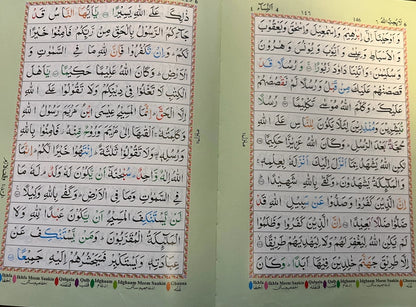 النساء ٤
١٤٦
وَاَوْحَيْنَآ اِلٰٓى اِبْرٰهِيْمَ وَاِسْمٰعِيْلَ وَاِسْحٰقَ وَيَعْقُوْبَ
وَالْاَسْبَاطِ وَعِيْسٰى وَاَيُّوْبَ وَيُوْنُسَ وَهٰرُوْنَ
وَسُلَيْمٰنَ ۚ وَاٰتَيْنَا دَاوٗدَ زَبُوْرًا وَرُسُلًا قَدْ
قَصَصْنٰهُمْ عَلَيْكَ مِنْ قَبْلُ وَرُسُلًا لَّمْ نَقْصُصْهُمْ
عَلَيْكَ ؕ وَكَلَّمَ اللّٰهُ مُوْسٰى تَكْلِيْمًا رُسُلًا
مُّبَشِّرِيْنَ وَمُنْذِرِيْنَ لِئَلَّا يَكُوْنَ لِلنَّاسِ عَلَى اللّٰهِ
حُجَّةٌۢ بَعْدَ الرُّسُلِ ؕ وَكَانَ اللّٰهُ عَزِيْزًا حَكِيْمًا
لٰكِنِ اللّٰهُ يَشْهَدُ بِمَآ اَنْزَلَ اِلَيْكَ اَنْزَلَهٗ بِعِلْمِهٖ ۚ
وَالْمَلٰٓئِكَةُ يَشْهَدُوْنَ ؕ وَكَفٰى بِاللّٰهِ شَهِيْدًا
اِنَّ الَّذِيْنَ كَفَرُوْا وَصَدُّوْا عَنْ سَبِيْلِ اللّٰهِ قَدْ
ضَلُّوْا ضَلٰلًۢا بَعِيْدًا اِنَّ الَّذِيْنَ كَفَرُوْا وَظَلَمُوْا
لَمْ يَكُنِ اللّٰهُ لِيَغْفِرَ لَهُمْ وَلَا لِيَهْدِيَهُمْ طَرِيْقًا
اِلَّا طَرِيْقَ جَهَنَّمَ خٰلِدِيْنَ فِيْهَآ اَبَدًا ؕ وَكَانَ
Ikhfa Ikhfa Meem Saakin Qalqala Qalb Idghaam Idghaam Meem Saakin Ghunna
ذٰلِكَ عَلَى اللّٰهِ يَسِيْرًا يٰٓاَيُّهَا النَّاسُ قَدْ
جَآءَكُمُ الرَّسُوْلُ بِالْحَقِّ مِنْ رَّبِّكُمْ فَاٰمِنُوْا خَيْرًا
لَّكُمْ ؕ وَاِنْ تَكْفُرُوْا فَاِنَّ لِلّٰهِ مَا فِي السَّمٰوٰتِ وَ
الْاَرْضِ ؕ وَكَانَ اللّٰهُ عَلِيْمًا حَكِيْمًا يٰٓاَهْلَ
الْكِتٰبِ لَا تَغْلُوْا فِيْ دِيْنِكُمْ وَلَا تَقُوْلُوْا عَلَى اللّٰهِ
اِلَّا الْحَقَّ ؕ اِنَّمَا الْمَسِيْحُ عِيْسَى ابْنُ مَرْيَمَ رَسُوْلُ اللّٰهِ
وَكَلِمَتُهٗ ۚ اَلْقٰىهَآ اِلٰى مَرْيَمَ وَرُوْحٌ مِّنْهُ ؗ فَاٰمِنُوْا بِاللّٰهِ
وَرُسُلِهٖ ۚ وَلَا تَقُوْلُوْا ثَلٰثَةٌ ؕ اِنْتَهُوْا خَيْرًا لَّكُمْ ؕ اِنَّمَا
اللّٰهُ اِلٰهٌ وَّاحِدٌ ؕ سُبْحٰنَهٗٓ اَنْ يَّكُوْنَ لَهٗ وَلَدٌ ۘ لَهٗ مَا فِي
السَّمٰوٰتِ وَمَا فِي الْاَرْضِ ؕ وَكَفٰى بِاللّٰهِ وَكِيْلًا
لَنْ يَّسْتَنْكِفَ الْمَسِيْحُ اَنْ يَّكُوْنَ عَبْدًا لِّلّٰهِ وَلَا
الْمَلٰٓئِكَةُ الْمُقَرَّبُوْنَ ؕ وَمَنْ يَّسْتَنْكِفْ عَنْ
عِبَادَتِهٖ وَيَسْتَكْبِرْ فَسَيَحْشُرُهُمْ اِلَيْهِ جَمِيْعًا
Ikhfa Ikhfa Meem Saakin Qalqala Qalb Idghaam Idghaam Meem Saakin Ghunna